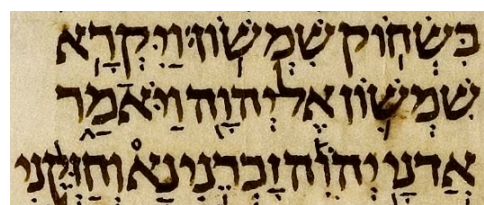 בִּשְׂחוֹק שִׁמְשׁוֹן׃ וַיִּקְרָא
שִׁמְשׁוֹן אֶל יְהוָה וַיֹּאמַר
אֲדֹנָי יְהוִֹה זָכְרֵנִי נָא וְחַזְּקֵנִי